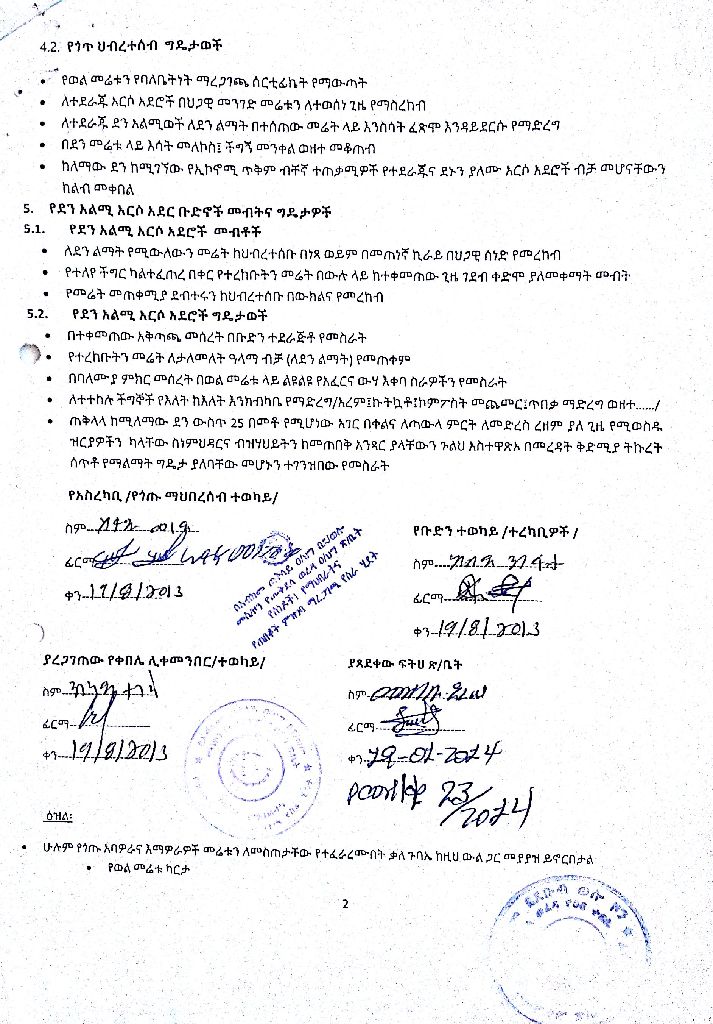 4.2. የጎጥ ህብረተሰብ ግዴታወች
• የወል መሬቱን የባለቤትነት ማረጋገጫ ሰርቲፊኬት የማውጣት
• ለተደራጁ አርሶ አደሮች በህጋዊ መንገድ መሬቱን ለተወሰነ ጊዜ የማስረከብ
• ለተደራጁ ደን አልሚወች ለደን ልማት በተሰጠው መሬት ላይ እንስሳት ፈጽሞ እንዳይደርሱ የማድረግ
• በደን መሬቱ ላይ እሳት መለኮስ፤ ችግኝ መንቀል ወዘተ መቆጠብ
• ከለማው ደን ከሚገኘው የኢኮኖሚ ጥቅም ብቸኛ ተጠቃሚዎች የተደራጁና ደኑን ያለሙ አርሶ አደሮች ብቻ መሆናቸውን
ከልብ መቀበል
5. የደን አልሚ አርሶ አደር ቡድኖች መብትና ግዴታዎች
5.1. የደን አልሚ አርሶ አደሮች መብቶች
• ለደን ልማት የሚውለውን መሬት ከህብረተሰቡ በነጻ ወይም በመጠነኛ ኪራይ በህጋዊ ሰነድ የመረከብ
• የተለየ ችግር ካልተፈጠረ በቀር የተረከቡትን መሬት በውሉ ላይ ከተቀመጠው ጊዜ ገደብ ቀድሞ ያለመቀማት መብት
• የመሬት መጠቀሚያ ደብተሩን ከህብረተሰቡ በውክልና የመረከብ
5.2. የደን አልሚ አርሶ አደሮች ግዴታወች
• በተቀመጠው አቅጣጫ መሰረት በቡድን ተደራጅቶ የመስራት
• የተረከቡትን መሬት ለታለመለት ዓላማ ብቻ (ለደን ልማት) የመጠቀም
• በባለሙያ ምክር መሰረት በወል መሬቱ ላይ ልዩልዩ የአፈርና ውሃ እቀባ ስራዎችን የመስራት
• ለተተከሉ ችግኞች የእለት ከእለት እንክብካቤ የማድረግ/አረም፤ኩትኳቶ፤ኮምፖስት መጨመር፤ጥበቃ ማድረግ ወዘተ....../
• ጠቅላላ ከሚለማው ደን ውስጥ 25 በመቶ የሚሆነው አገር በቀልና ለጣውላ ምርት ለመድረስ ረዘም ያለ ጊዜ የሚወስዱ
ዝርያዎችን ካላቸው ስነምህዳርና ብዝሃህይትን ከመጠበቅ አንጻር ያላቸውን ጉልህ አስተዋጽኦ በመረዳት ቅድሚያ ትኩረት
ሰጥቶ የማልማት ግዴታ ያለባቸው መሆኑን ተገንዝበው የመስራት
የአስረካቢ /የጎጡ ማህበረሰብ ተወካይ/
ስም
ፊርማ
ቀን 19/8/2013
የቡድን ተወካይ /ተረካቢዎች /
ስም
ፊርማ
ቀን 19/8/2013
ያረጋገጠው የቀበሌ ሊቀመንበር/ተወካይ/
ስም
ፊርማ
ቀን 19/8/2013
ያጸደቀው ፍትህ ጽ/ቤት
ስም
ፊርማ
ቀን 29-02-2024
23/2024
ዕዝል፡
• ሁሉም የጎጡ አባዎራና እማዎራዎች መሬቱን ለመስጠታቸው የተፈራረሙበት ቃለ ጉባኤ ከዚህ ውል ጋር መያያዝ ይኖርበታል
• የወል መሬቱ ካርታ
2